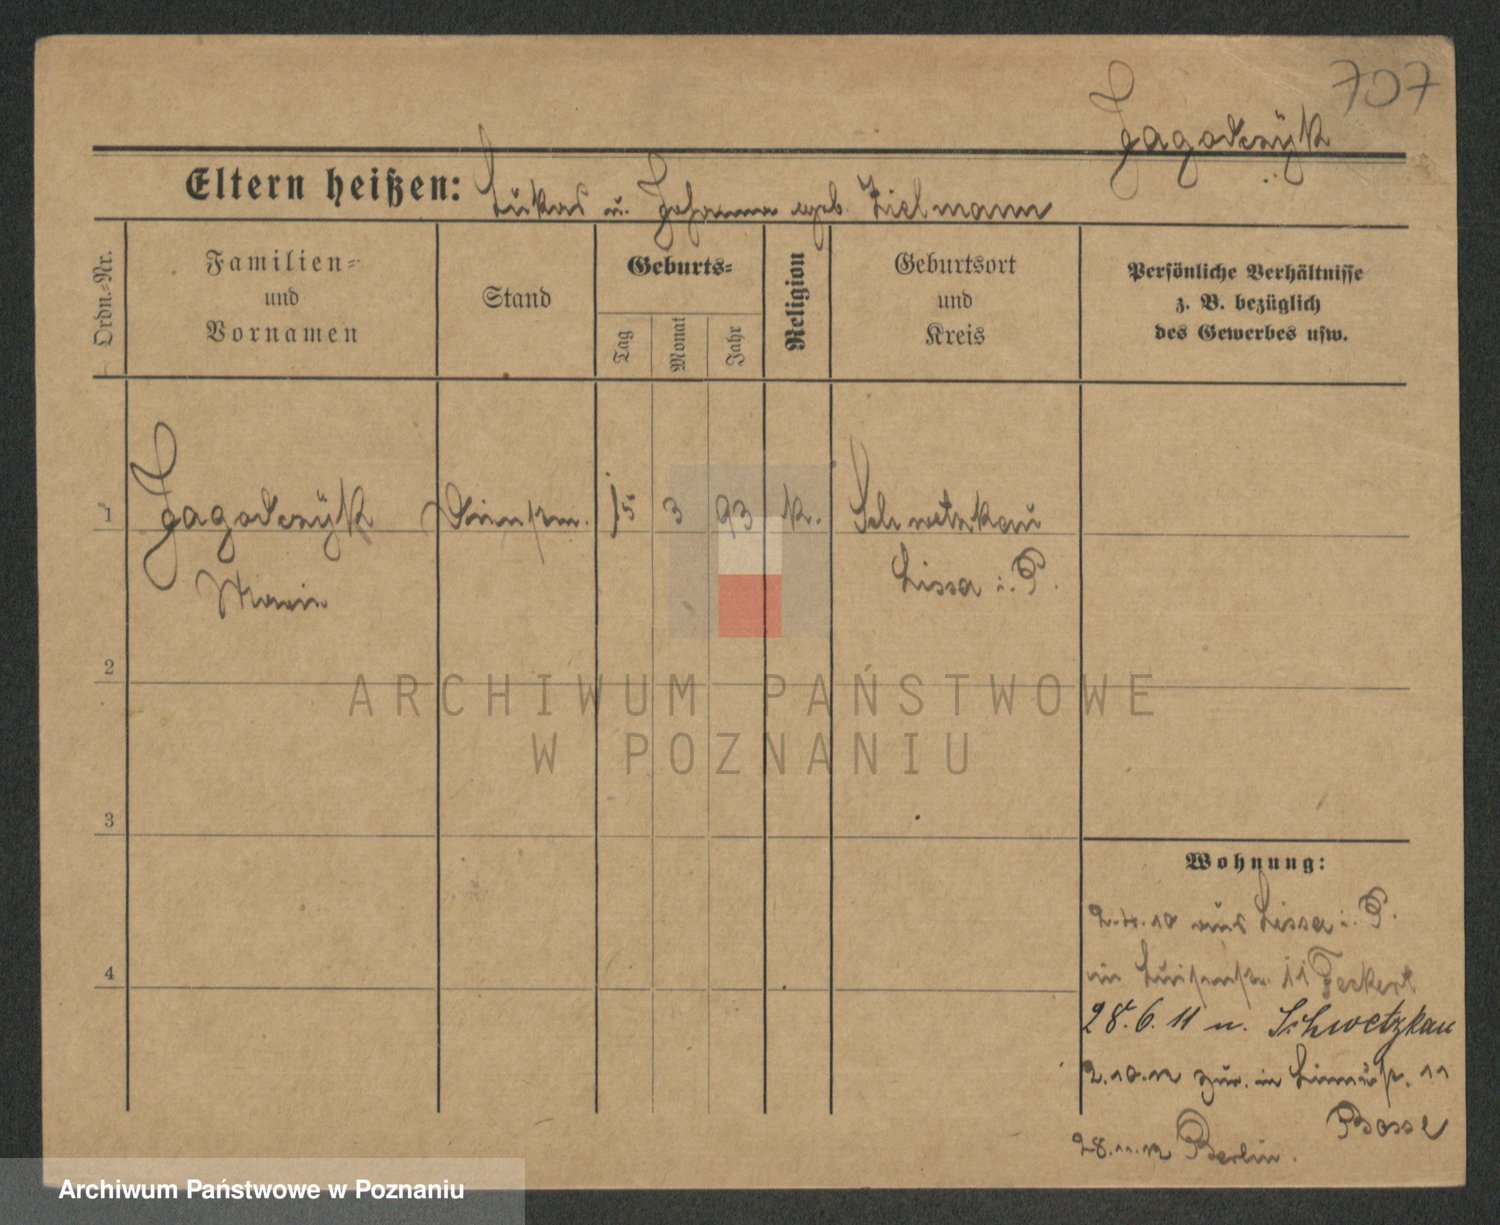 707
Jagodczÿk
Eltern heißen: Lukas u. Johanna geb. Zielmann
Ordn.-Nr.
Familien-
und
Vornamen
Stand
Geburts-
Tag
Monat
Jahr
Religion
Geburtsort
und
Kreis
Persönliche Verhältnisse
z. B. bezüglich
des Gewerbes usw.
1
Jagodczÿk
Marie
15 3 93 k.
Schwetzkau
Lissa i. P.
2
3
4
Wohnung:
aus Lissa i. P.
in 11
28. 6. 11 n. Schwetzkau
2.10.12 zur. in 11
Bosse
28.11.12 Berlin.
ARCHIWUM PAŃSTWOWE
W POZNANIU
Archiwum Państwowe w Poznaniu